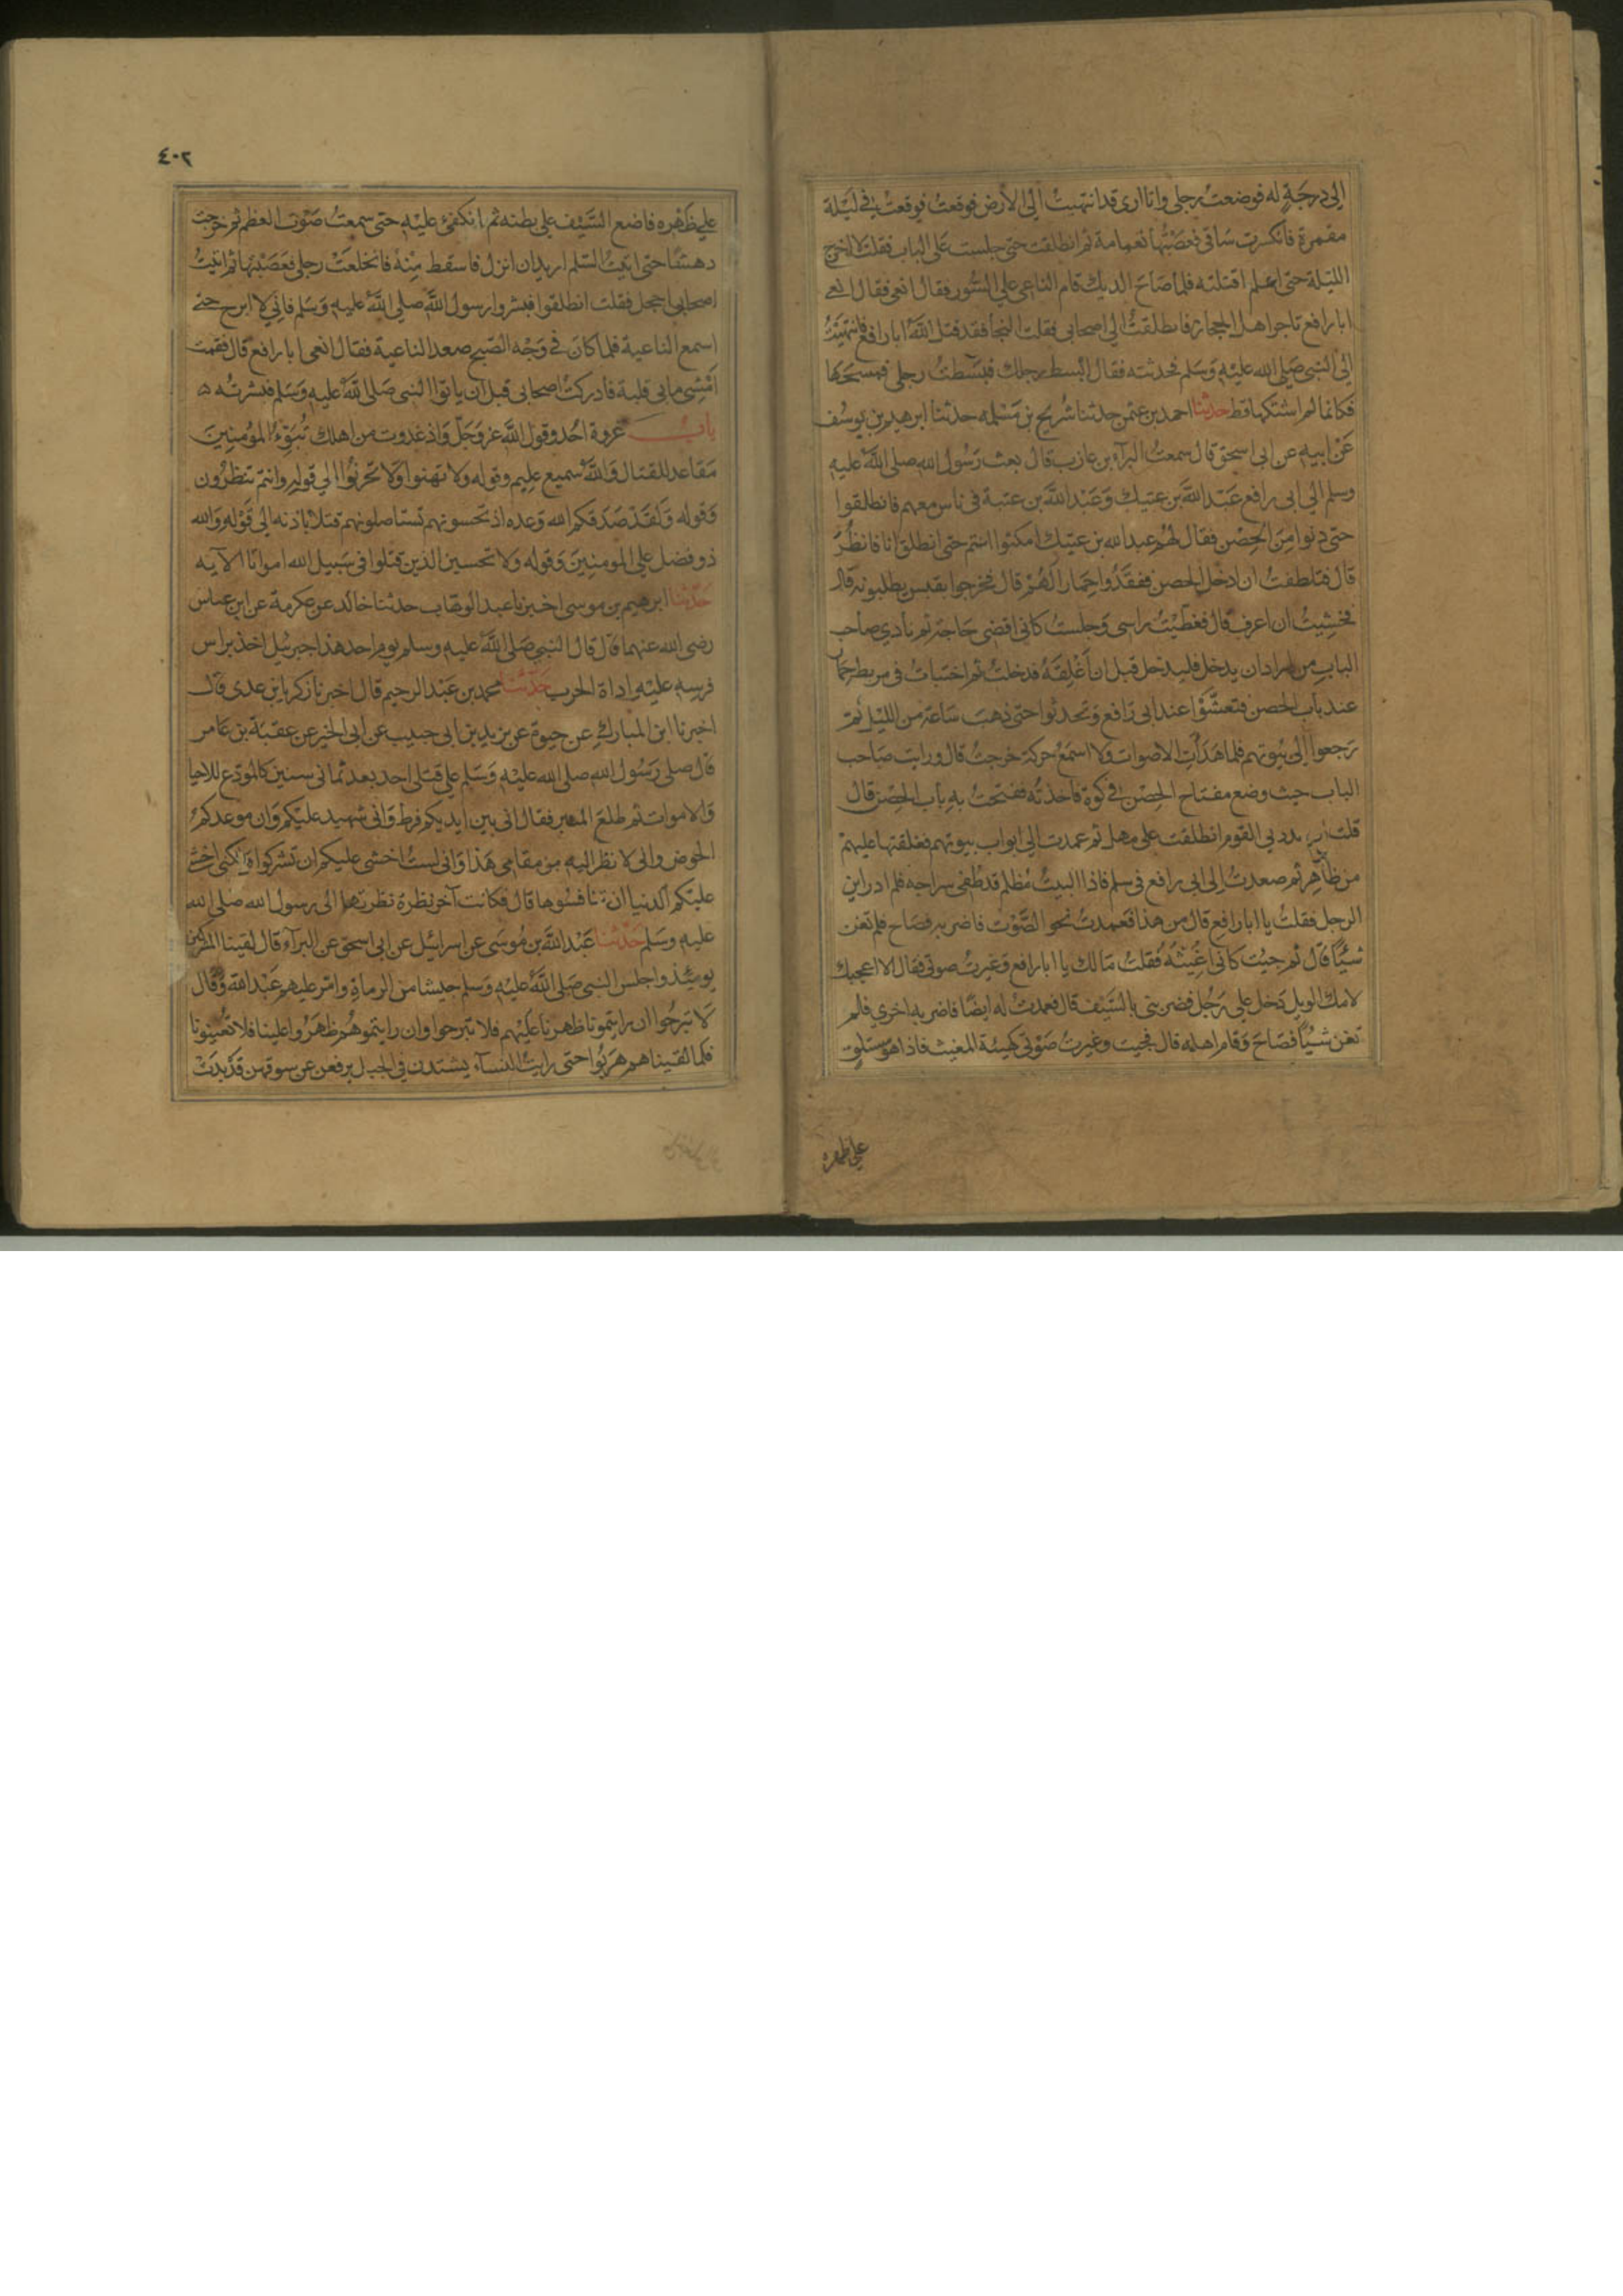 الى درجة له فوضعت رجلى وانا ارى قد انتهيت الى الارض فوقعت فوقعت في ليلة
مقمرة فانكسرت ساقى فعصبتها بعمامة ثم انطلقت حتى جلست على الباب فقلت لا اخرج
الليلة حتى اعلم اقتلته فلما صاح الديك قام الناعى على السور فقال انعى فقال انعي
ابا رافع تاجر اهل الحجاز فانطلقت الى اصحابى فقلت النجا فقد قتل الله ابا رافع فانتهيت
الى النبى صلى الله عليه وسلم فحدثته فقال ابسط رجلك فبسطت رجلى فمسحها
فكانما لم اشتكها قط حدثنا احمد بن عثمن حدثنا شريح بن مسلمه حدثنا ابرهيم بن يوسف
عن ابيه عن ابى اسحق قال سمعت البرآء بن عازب قال بعث رسول الله صلى الله عليه
وسلم الى ابى رافع عبد الله بن عتيك وعبد الله بن عتبة فى ناس معهم فانطلقوا
حتى دنوا من الحصن فقال لهم عبد الله بن عتيك امكثوا انتم حتى انطلق انا فانظر
قال فتلطفت ان ادخل الحصن ففقدوا حمارا لهم قال فخرجوا بقبس يطلبونه قال
فخشيت ان اعرف قال فغطيت راسى وجلست كانى اقضى حاجة ثم نادى صاحب
الباب من اراد ان يدخل فليدخل قبل ان اغلقه فدخلت ثم اختبات فى مربط حمار
عند باب الحصن فتعشوا عند ابى رافع وتحدثوا حتى ذهب ساعة من الليل ثم
رجعوا الى بيوتهم فلما هدأت الاصوات ولا اسمع حركة خرجت قال ورايت صاحب
الباب حيث وضع مفتاح الحصن في كوة فاخذته ففتحت به باب الحصن قال
قلت ان نذر بى القوم انطلقت على مهل ثم عمدت الى ابواب بيوتهم فغلقتها عليهم
من ظاهر ثم صعدت الى ابى رافع فى سلم فاذا البيت مظلم قد طفى سراجه فلم ادر اين
الرجل فقلت يا ابا رافع قال من هذا فعمدت نحو الصوت فاضربه فصاح فلم تغن
شيئا قال ثم جيت كانى اغيثه فقلت مالك يا ابا رافع وغيرت صوتى فقال الا اعجبك
لامك الويل دخل على رجل فضربنى بالسيف قال فعمدت له ايضا فاضربه اخرى فلم
تغن شيئا فصاح وقام اهله قال فجيت وغيرت صوتى كهيئة المغيث فاذا هو مستلق
على ظهره
٤٠٢
على ظهره فاضع السيف على بطنه ثم انكفئ عليه حتى سمعت صوت العظم ثم خرجت
دهشا حتى اتيت السلم اريد ان انزل فاسقط منه فانخلعت رجلى فعصبتها ثم اتيت
اصحابى احجل فقلت انطلقوا فبشروا رسول الله صلى الله عليه وسلم فانى لا ابرح حتى
اسمع الناعية فلما كان فى وجه الصبح صعد الناعية فقال انعى ابا رافع قال فقمت
امشى ما بى قلبة فادركت اصحابى قبل ان ياتوا النبى صلى الله عليه وسلم فبشرته ه
باب غزوة احد وقول الله عز وجل واذ غدوت من اهلك تبوئ المؤمنين
مقاعد للقتال والله سميع عليم وقوله ولا تهنوا ولا تحزنوا الى قوله وانتم تنظرون
وقوله ولقد صدقكم الله وعده اذ تحسونهم تستاصلونهم قتلا باذنه الى قوله والله
ذو فضل على المومنين وقوله ولا تحسبن الذين قتلوا فى سبيل الله امواتا الآيه
حدثنا ابرهيم بن موسى اخبرنا عبد الوهاب حدثنا خالد عن عكرمة عن ابن عباس
رضى الله عنهما قال قال النبى صلى الله عليه وسلم يوم احد هذا جبرئيل اخذ براس
فرسه عليه اداة الحرب حدثنا محمد بن عبد الرحيم قال اخبرنا زكريا بن عدى قال
اخبرنا ابن المبارك عن حيوة عن يزيد بن ابى حبيب عن ابى الخير عن عقبة بن عامر
قال صلى رسول الله صلى الله عليه وسلم على قتلى احد بعد ثمانى سنين كالمودع للاحيا
والاموات ثم طلع المنبر فقال انى بين ايديكم فرط وانى شهيد عليكم وان موعدكم
الحوض وانى لا نظر اليه من مقامى هذا وانى لست اخشى عليكم ان تشركوا ولكنى اخشى
عليكم الدنيا ان تنافسوها قال فكانت آخر نظرة نظرتها الى رسول الله صلى الله
عليه وسلم حدثنا عبد الله بن موسى عن اسرائيل عن ابى اسحق عن البرآء قال لقينا المشركين
يومئذ واجلس النبى صلى الله عليه وسلم جيشا من الرماة وامر عليهم عبد الله وقال
لا تبرحوا ان رايتمونا ظهرنا عليهم فلا تبرحوا وان رايتموهم ظهروا علينا فلا تعينونا
فلما لقيناهم هربوا حتى رايت النسآء يشتددن فى الجبل يرفعن عن سوقهن قد بدت